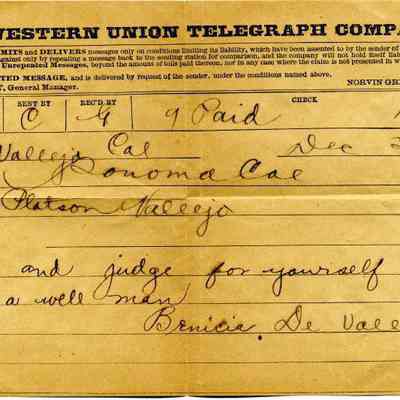 WESTERN UNION TELEGRAPH COMPA
MITS and DELIVERS messages only on conditions limiting its liability, which have been assented to by the sender of
against only by repeating a message back to the sending station for comparison, and the company will not hold itself liabl
Unrepeated Messages, beyond the amount of tolls paid thereon, nor in any case where the claim is not presented in w
TED MESSAGE, and is delivered by request of the sender, under the conditions named above.
T, General Manager. NORVIN GRE
SENT BY REC'D BY CHECK
C G 9 Paid
Vallejo Cal Dec 2
Sonoma Cal
Platson Vallejo
and judge for yourself
a well man
Benicia De Valle